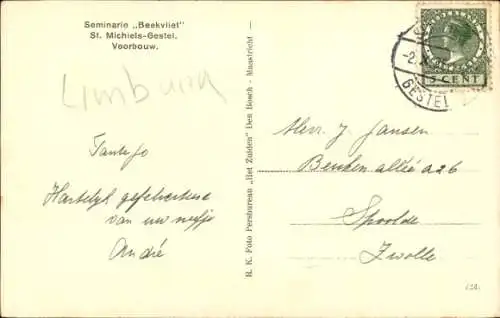 Seminarie „Beekvliet"
St. Michiels-Gestel.
Voorbouw.
Limburg
Tante Jo
Hartelijk gefeliciteerd
van uw neefje
André
R. K. Foto Persbureau „Het Zuiden" Den Bosch - Maastricht
5 CENT
GESTEL
Mevr. J. Jansen
Beuken allée a 26
Spoolde
Zwolle